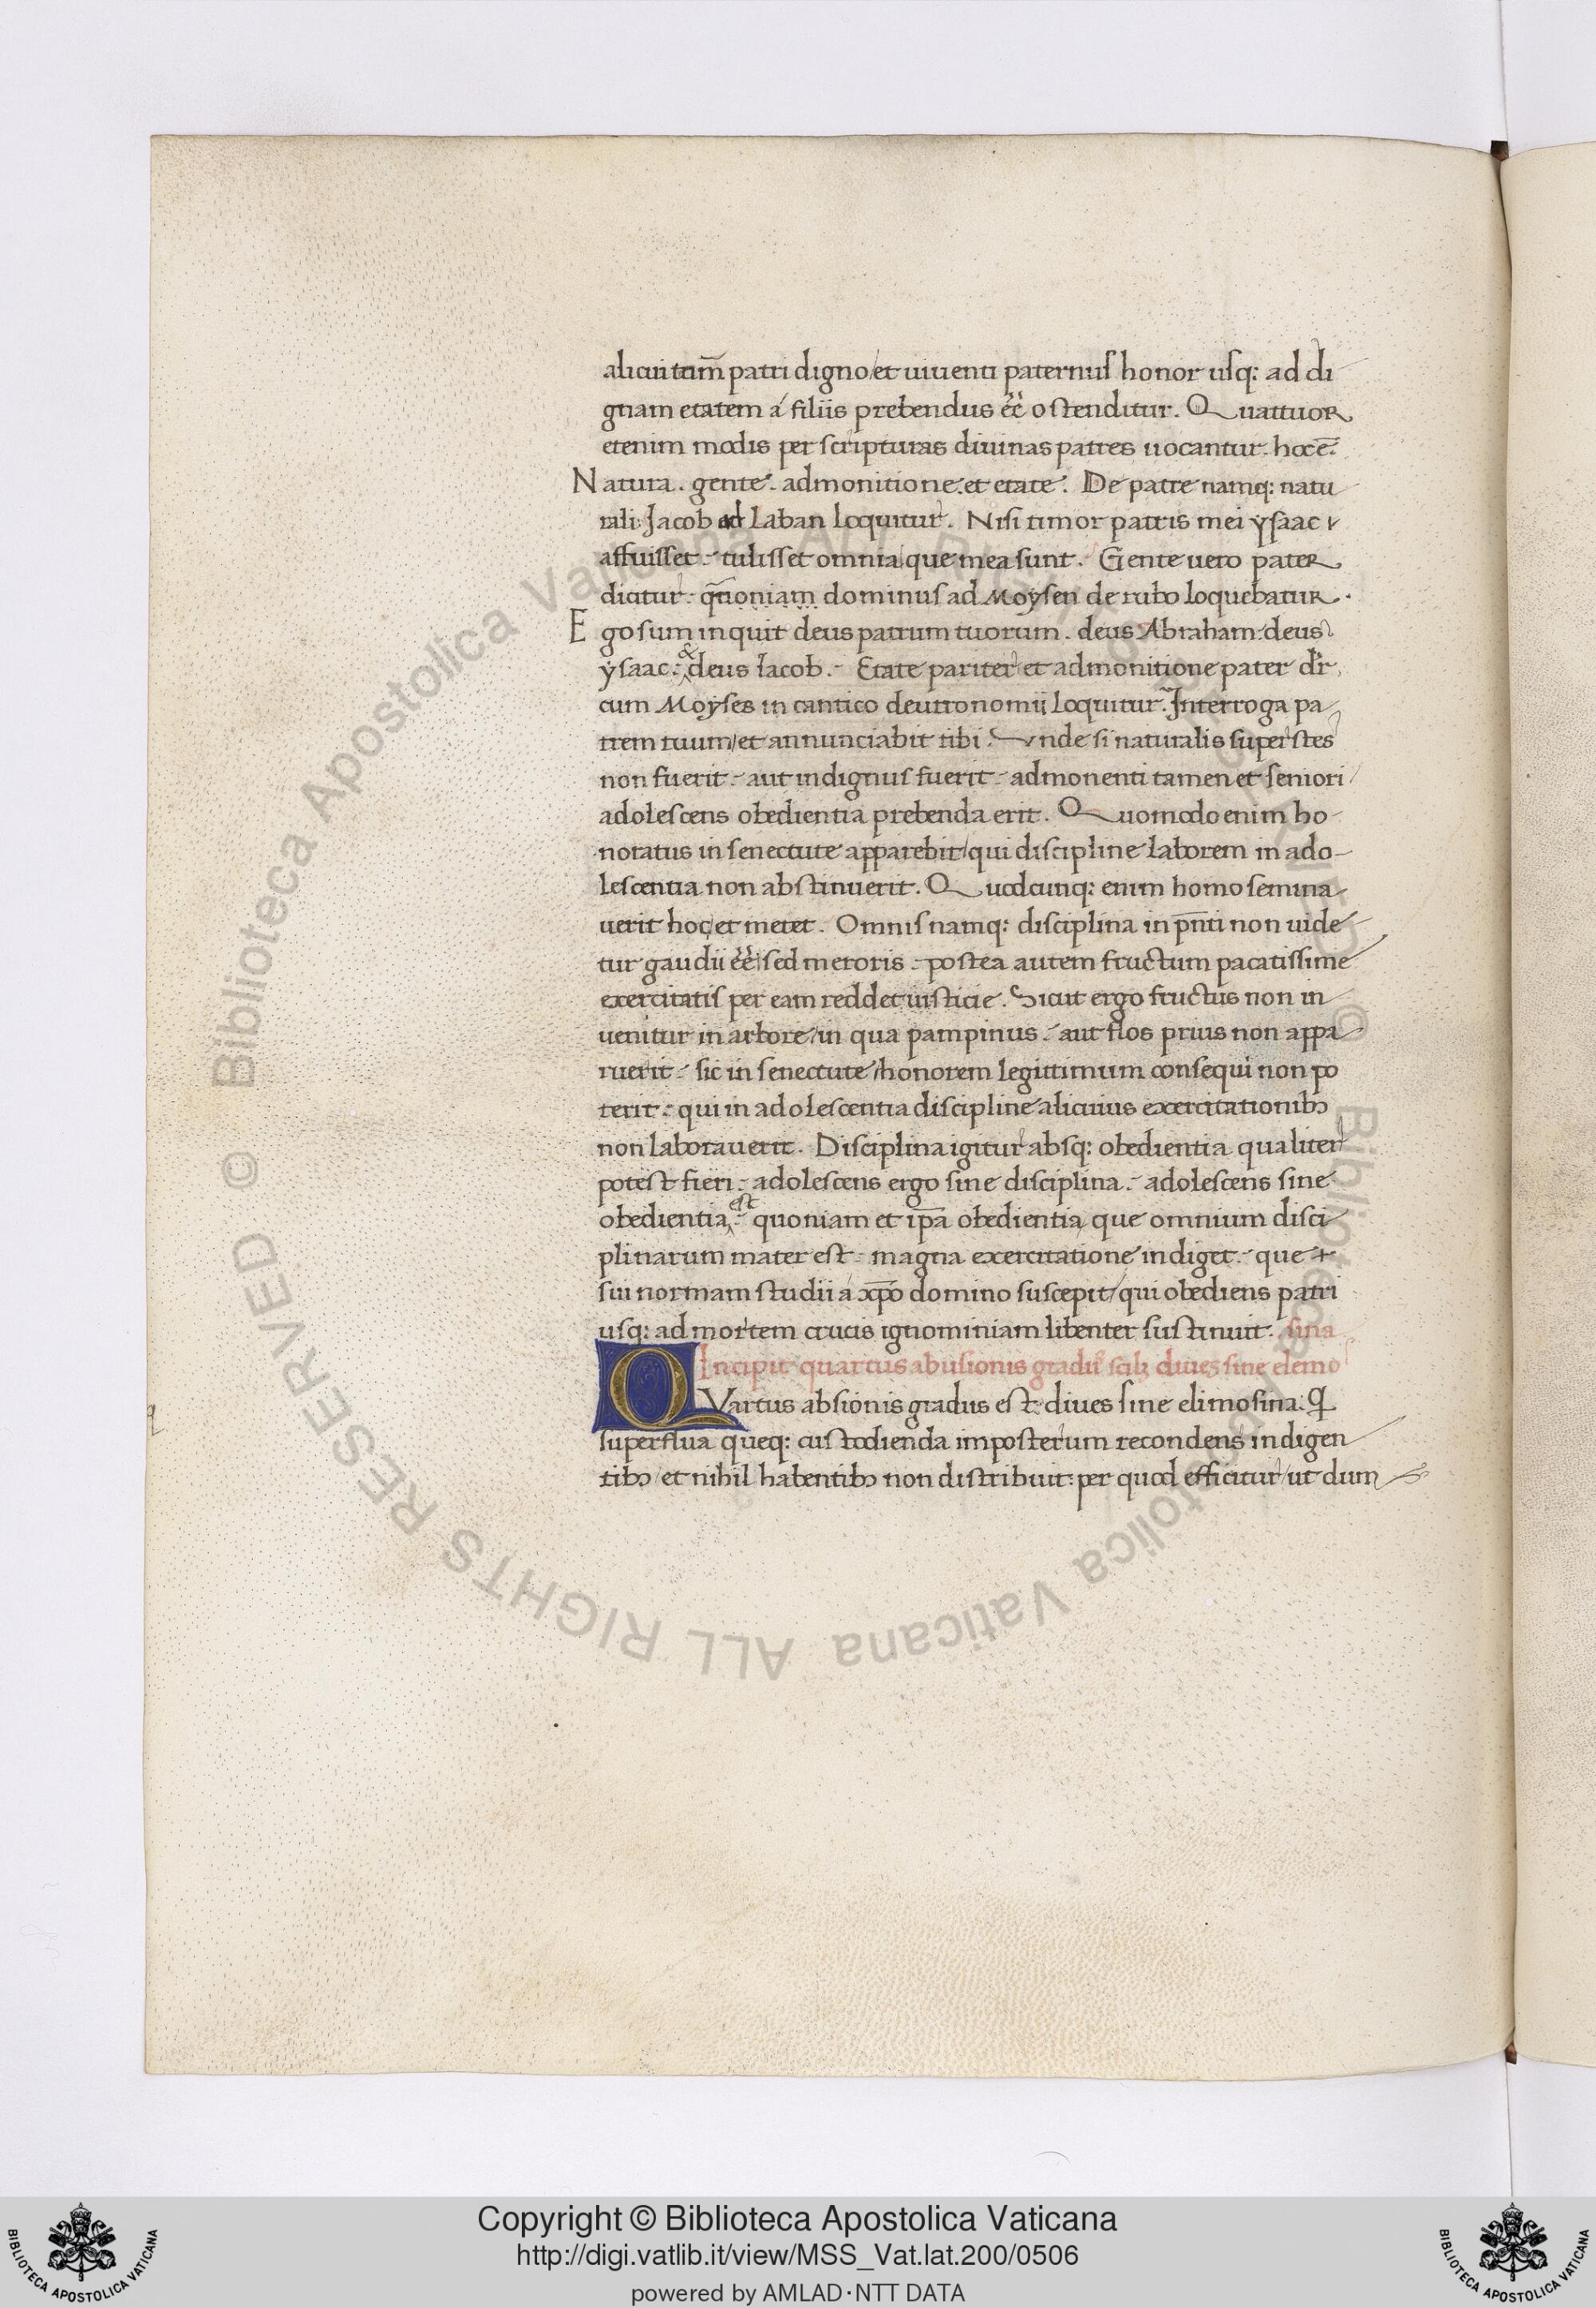 alicui tam̄ patri digno/et uiuenti paternus honor usq: ad di
gnam etatem á filiis prebendus eē ostenditur. Quattuor
etenim modis per scripturas diuinas patres uocantur. hoc ē.
Natura. gente. admonitione. et etate. De patre namq: natu
rali Jacob ad Laban loquitur. Nisi timor patris mei ysaac
affuisset. tulisset omnia que mea sunt. Gente uero pater
dicitur. qn̄oniam dominus ad Moysen de rubo loquebatur.
Ego sum inquit deus patrum tuorum. deus Abraham. deus
ysaac. & deus Iacob. Etate pariter et admonitione pater dr̄
cum Moyses in cantico deutronomii loquitur. Interroga pa-
trem tuum/et annunciabit tibi. Vnde si naturalis superstes
non fuerit. aut indignus fuerit. admonenti tamen et seniori
adolescens obedientia prebenda erit. Quomodo enim ho-
noratus in senectute apparebit/qui discipline laborem in ado-
lescentia non abstinuerit. Quodcunq: enim homo semina-
uerit hoc et metet. Omnis namq: disciplina in pn̄ti non uide
tur gaudii eē sed meroris. postea autem fructum pacatissime
exercitatis per eam reddet iusticie. Sicut ergo fructus non in
uenitur in arbore/in qua pampinus. aut flos prius non appa
ruerit. sic in senectute/honorem legittimum consequi non po
terit. qui in adolescentia discipline alicuius exercitationib;
non laborauerit. Disciplina igitur absq: obedientia qualiter
potest fieri. adolescens ergo sine disciplina. adolescens sine
obedientia est. quoniam et ip̄a obedientia que omnium disci-
plinarum mater est. magna exercitatione indiget. que
sui normam studii á xp̄o domino suscepit/qui obediens patri
usq: ad mortem crucis ignominiam libenter sustinuit. sina
Incipit quartus abusionis gradus scilz diues sine elemo
QVartus absionis gradus est. diues sine elimosina. Q
superflua queq: custodienda imposterum recondens indigen
tib; et nihil habentib; non distribuit: per quod efficitur/ut dum
© Biblioteca Apostolica Vaticana ALL RIGHTS RESERVED © Biblioteca Apostolica Vaticana ALL RIGHTS RESERVED
Copyright © Biblioteca Apostolica Vaticana
http://digi.vatlib.it/view/MSS_Vat.lat.200/0506
powered by AMLAD·NTT DATA
BIBLIOTECA APOSTOLICA VATICANA
BIBLIOTECA APOSTOLICA VATICANA